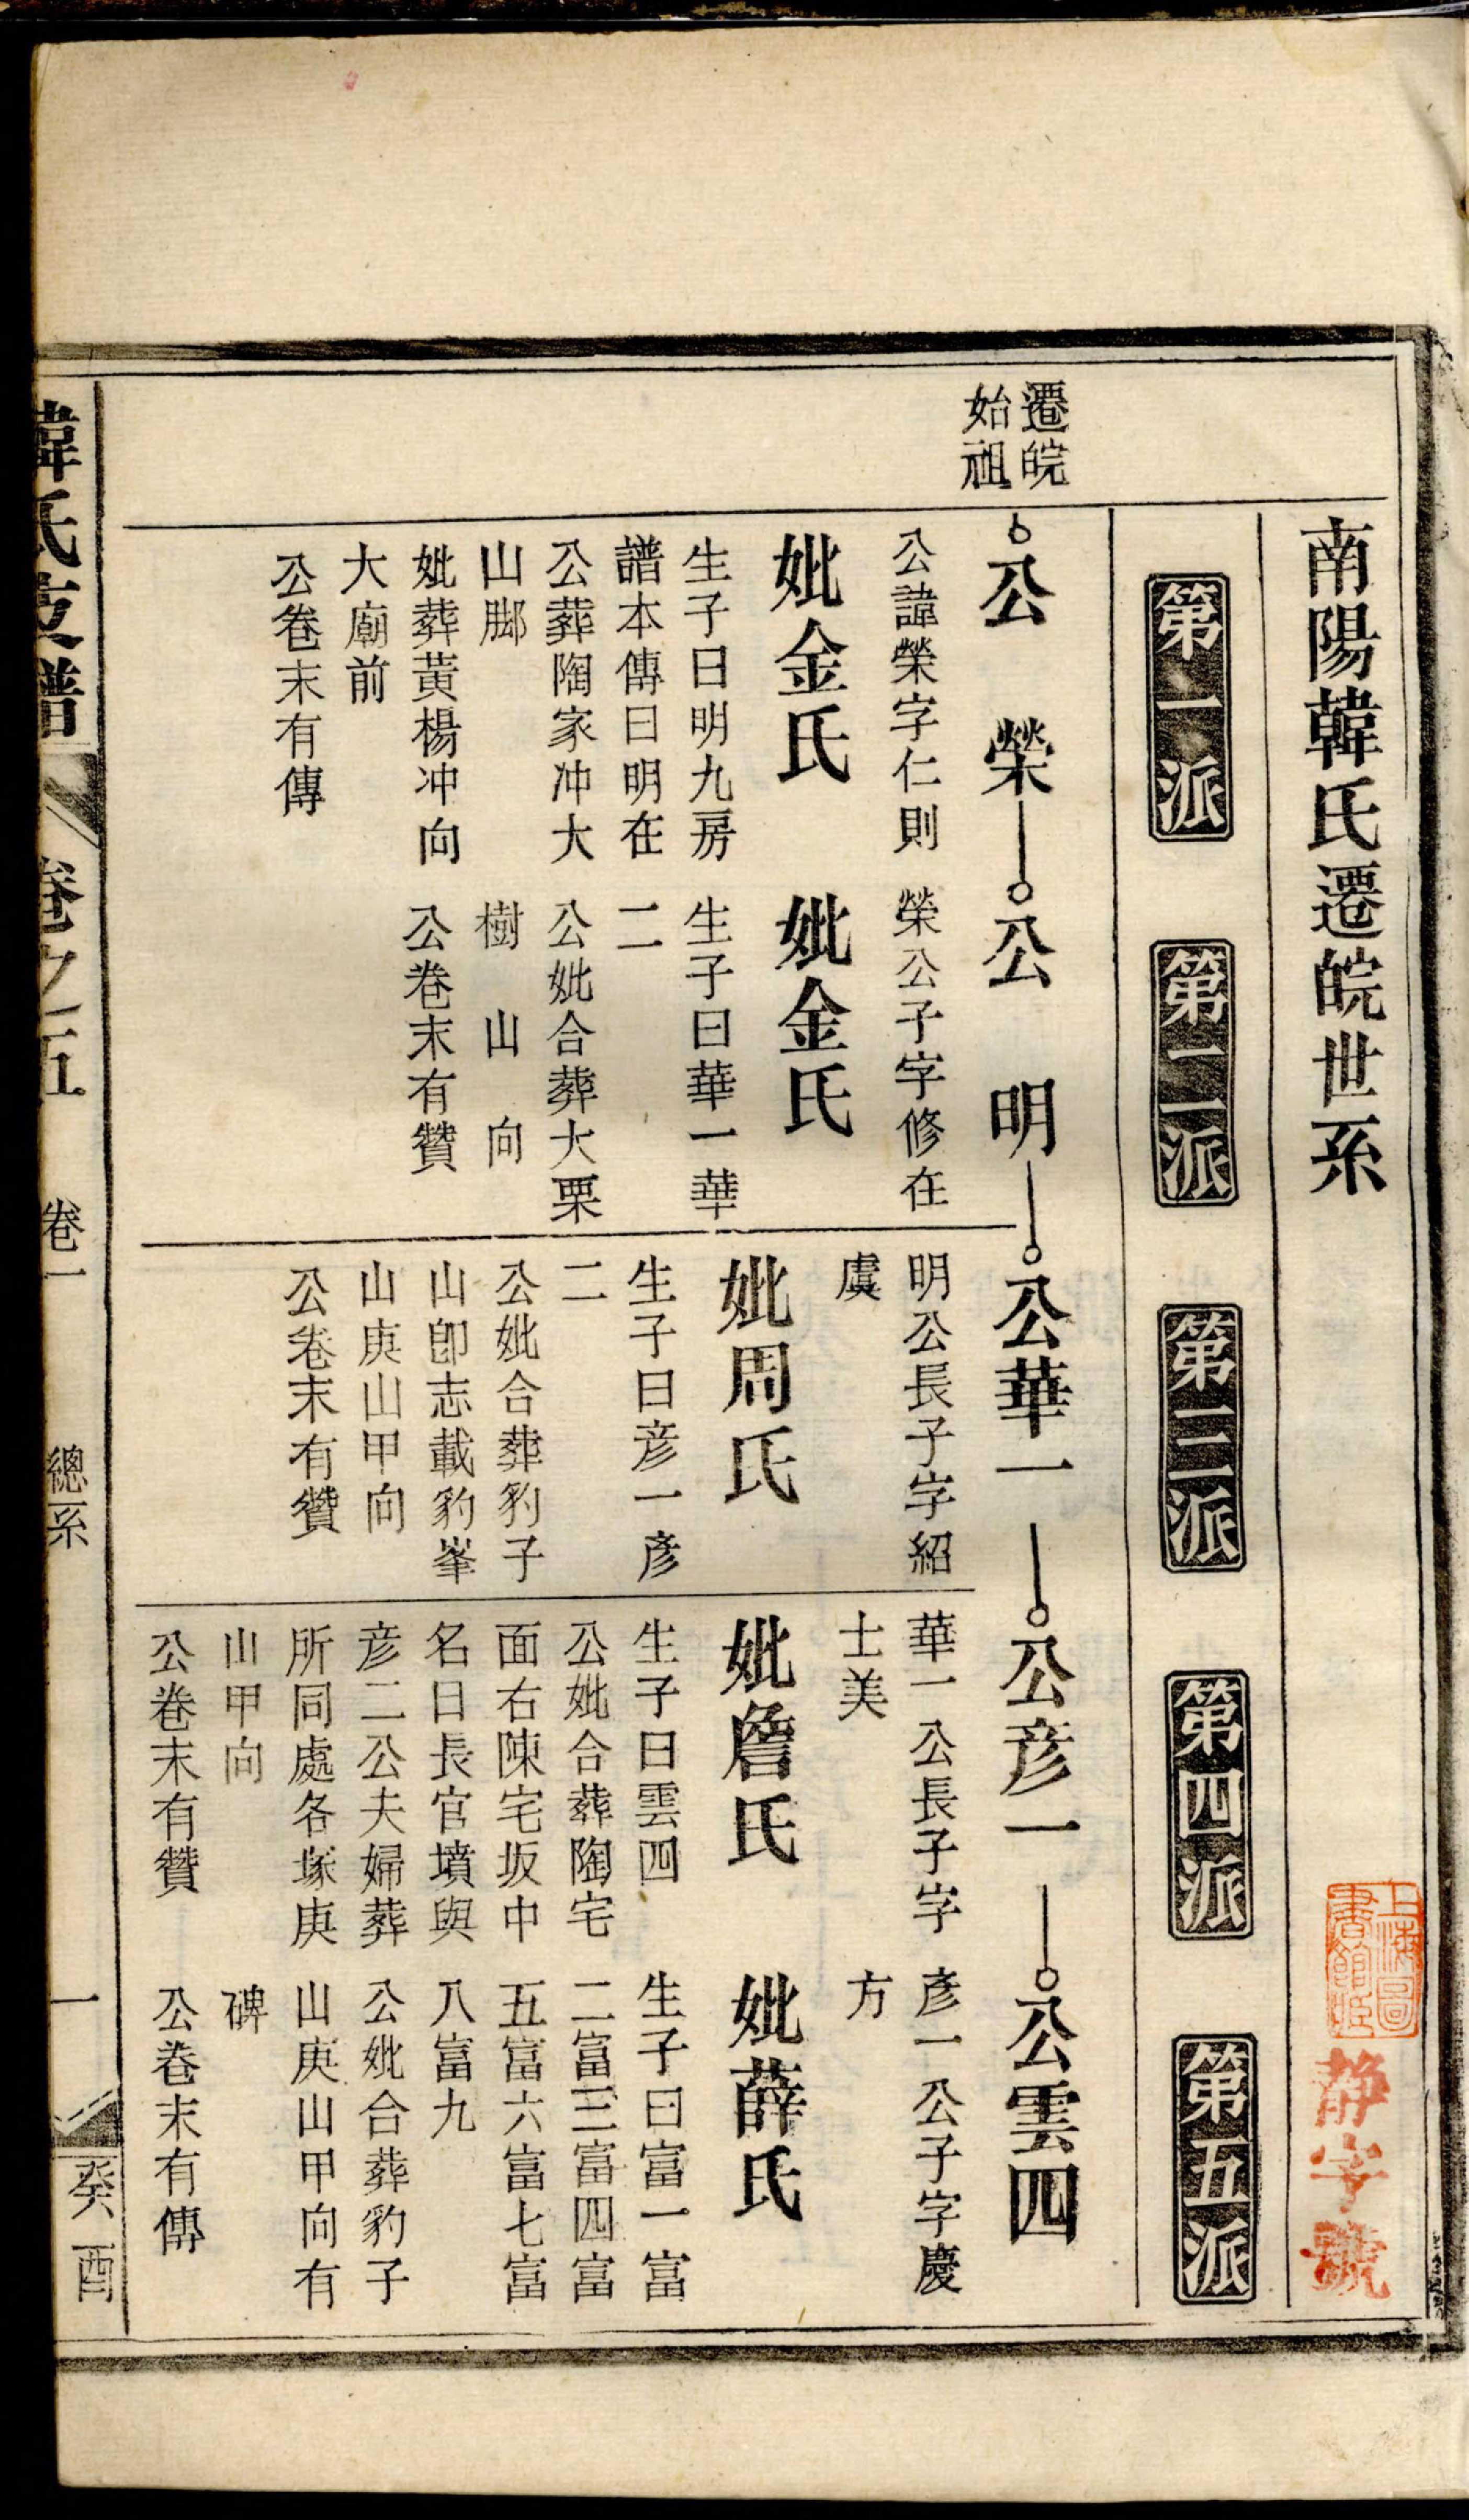 南陽韓氏遷皖世系
上海圖
書館藏
静字號
第一派
第二派
第三派
第四派
第五派
遷皖
始祖
公榮
公諱榮字仁則
妣金氏
生子曰明九房
譜本傳曰明在
公葬陶家冲大
山脚
妣葬黃楊冲向
大廟前
公卷末有傳
公明
榮公子字修在
妣金氏
生子曰華一華
二
公妣合葬大栗
樹山向
公卷末有贊
公華一
明公長子字紹
虞
妣周氏
生子曰彦一彦
二
公妣合葬豹子
山卽志載豹峯
山庚山甲向
公卷末有贊
公彦一
華一公長子字
士美
妣詹氏
生子曰雲四
公妣合葬陶宅
面右陳宅坂中
名曰長官墳與
彦二公夫婦葬
所同處各塚庚
山甲向
公卷末有贊
公雲四
彦一公子字慶
方
妣薛氏
生子曰富一富
二富三富四富
五富六富七富
八富九
公妣合葬豹子
山庚山甲向有
碑
公卷末有傳
韓氏支譜 卷之五 卷一 總系 一 癸酉